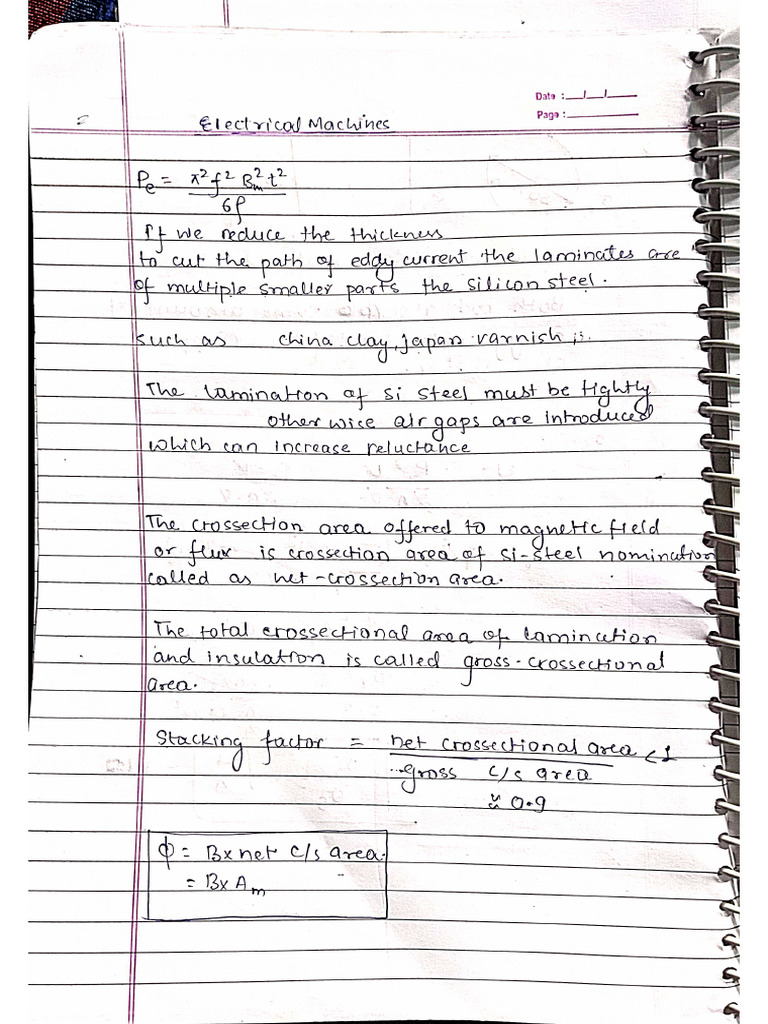 Date :__/__/__
Page :
=
Electrical Machines
Pe = π² f² Bm² t²
6ρ
If we reduce the thickness
to cut the path of eddy current the laminates are
of multiple smaller parts the silicon steel.
such as china clay, japan varnish ;.
The lamination of si steel must be tightly
otherwise air gaps are introduced
which can increase reluctance
The crossection area offered to magnetic field
or flux is crossection area of si-steel nomination
called as net-crossection area.
The total crossectional area of lamination
and insulation is called gross-crossectional
area.
Stacking factor = net crossectional area < 1
gross c/s area
≈ 0.9
ϕ = B x net c/s area.
= B x Am